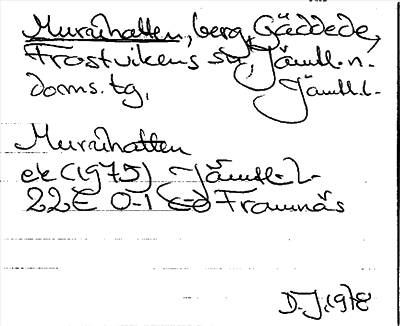 Murrihatten, berg, Gäddede,
Frostvikens sn, Jämtl. n.
doms. tg, Jämtl. l.
Murrihatten
ek (1975) Jämtl. l.
22E 0-1 c-d Framnäs
D.J. 1978